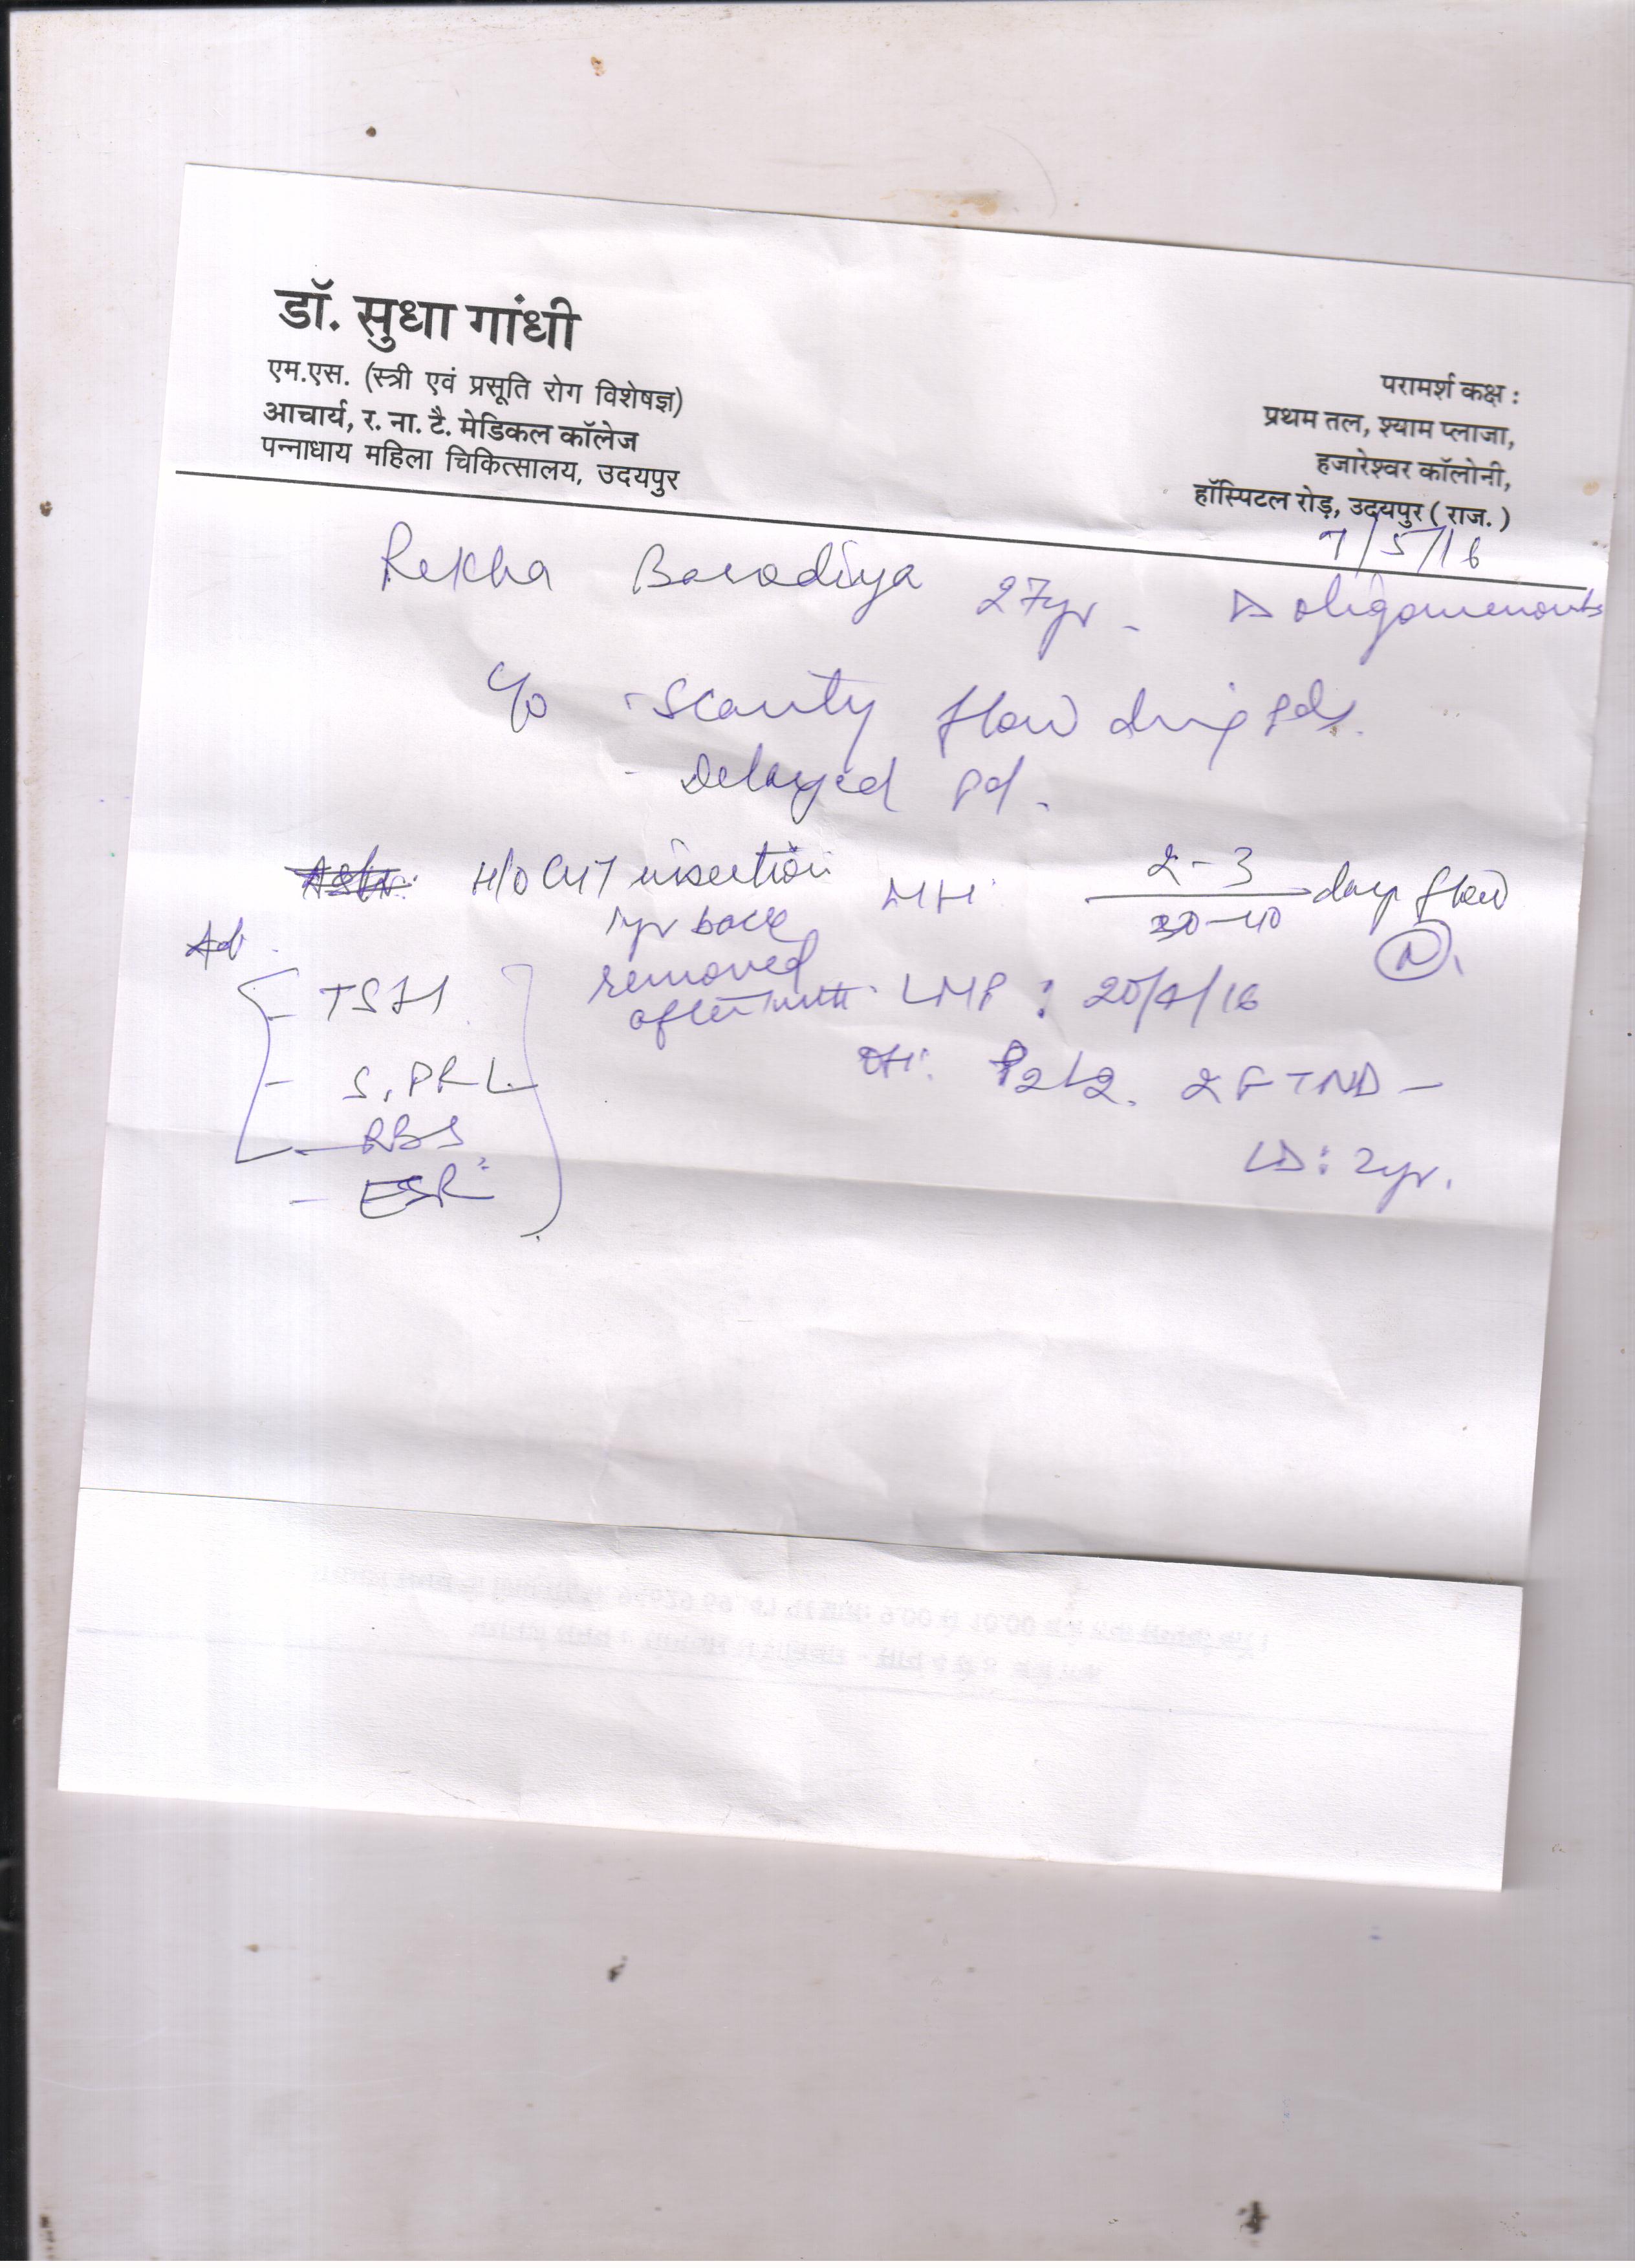 डॉ. सुधा गांधी
एम.एस. (स्त्री एवं प्रसूति रोग विशेषज्ञ)
आचार्य, र. ना. टै. मेडिकल कॉलेज
पन्नाधाय महिला चिकित्सालय, उदयपुर
परामर्श कक्ष :
प्रथम तल, श्याम प्लाजा,
हजारेश्वर कॉलोनी,
हॉस्पिटल रोड़, उदयपुर ( राज. )
7/5/16
Rekha Baradiya 27yr. Δ
c/o - Scanty flow during pds.
- Delayed pd.
H/O CuT insertion
1yr back
removed
after 1 mth.
MH: 2-3 days flow
30-40
(N).
LMP : 20/4/16
OH: P2L2. 2 FTND -
LD: 2yr.
Ad.
- TSH
- S. PRL
- RBS
- ESR